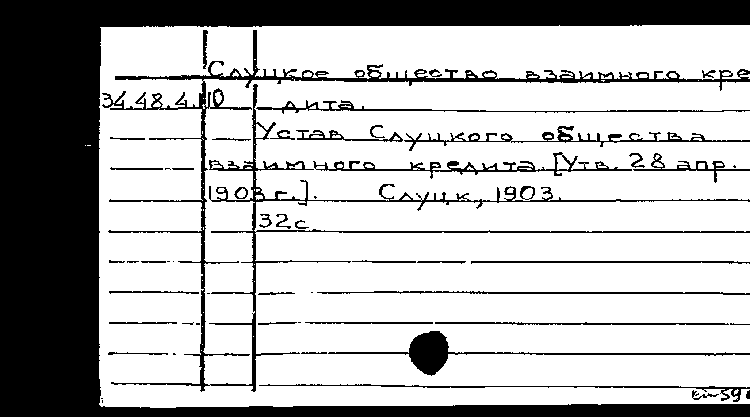 Слуцкое общество взаимного кре
34.48.4.110 дита.
Устав Слуцкого общества
взаимного кредита. [Утв. 28 апр.
1903 г.]. Слуцк, 1903.
32с.